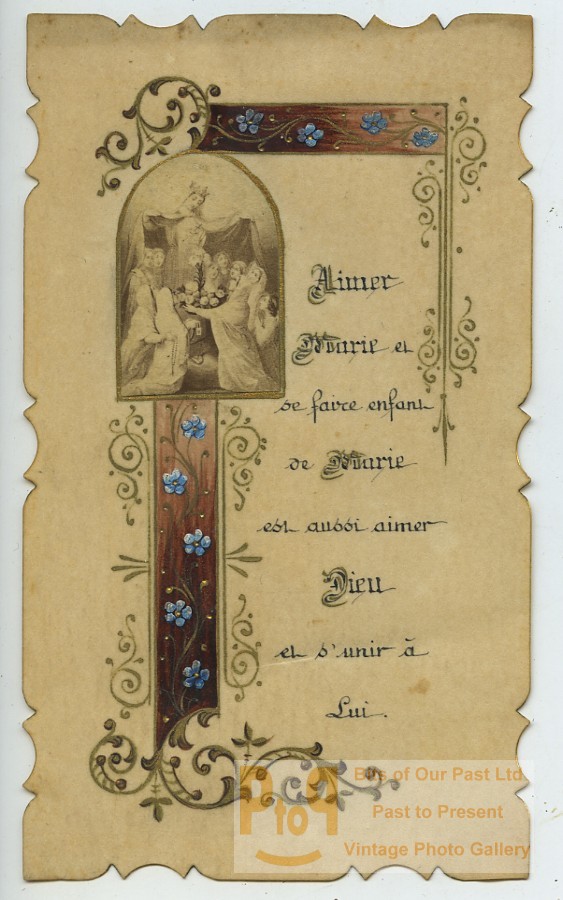 Aimer
Marie et
se faire enfant
de Marie
est aussi aimer
Dieu
et s'unir à
Lui.
PtoP
Bits of Our Past Ltd
Past to Present
Vintage Photo Gallery